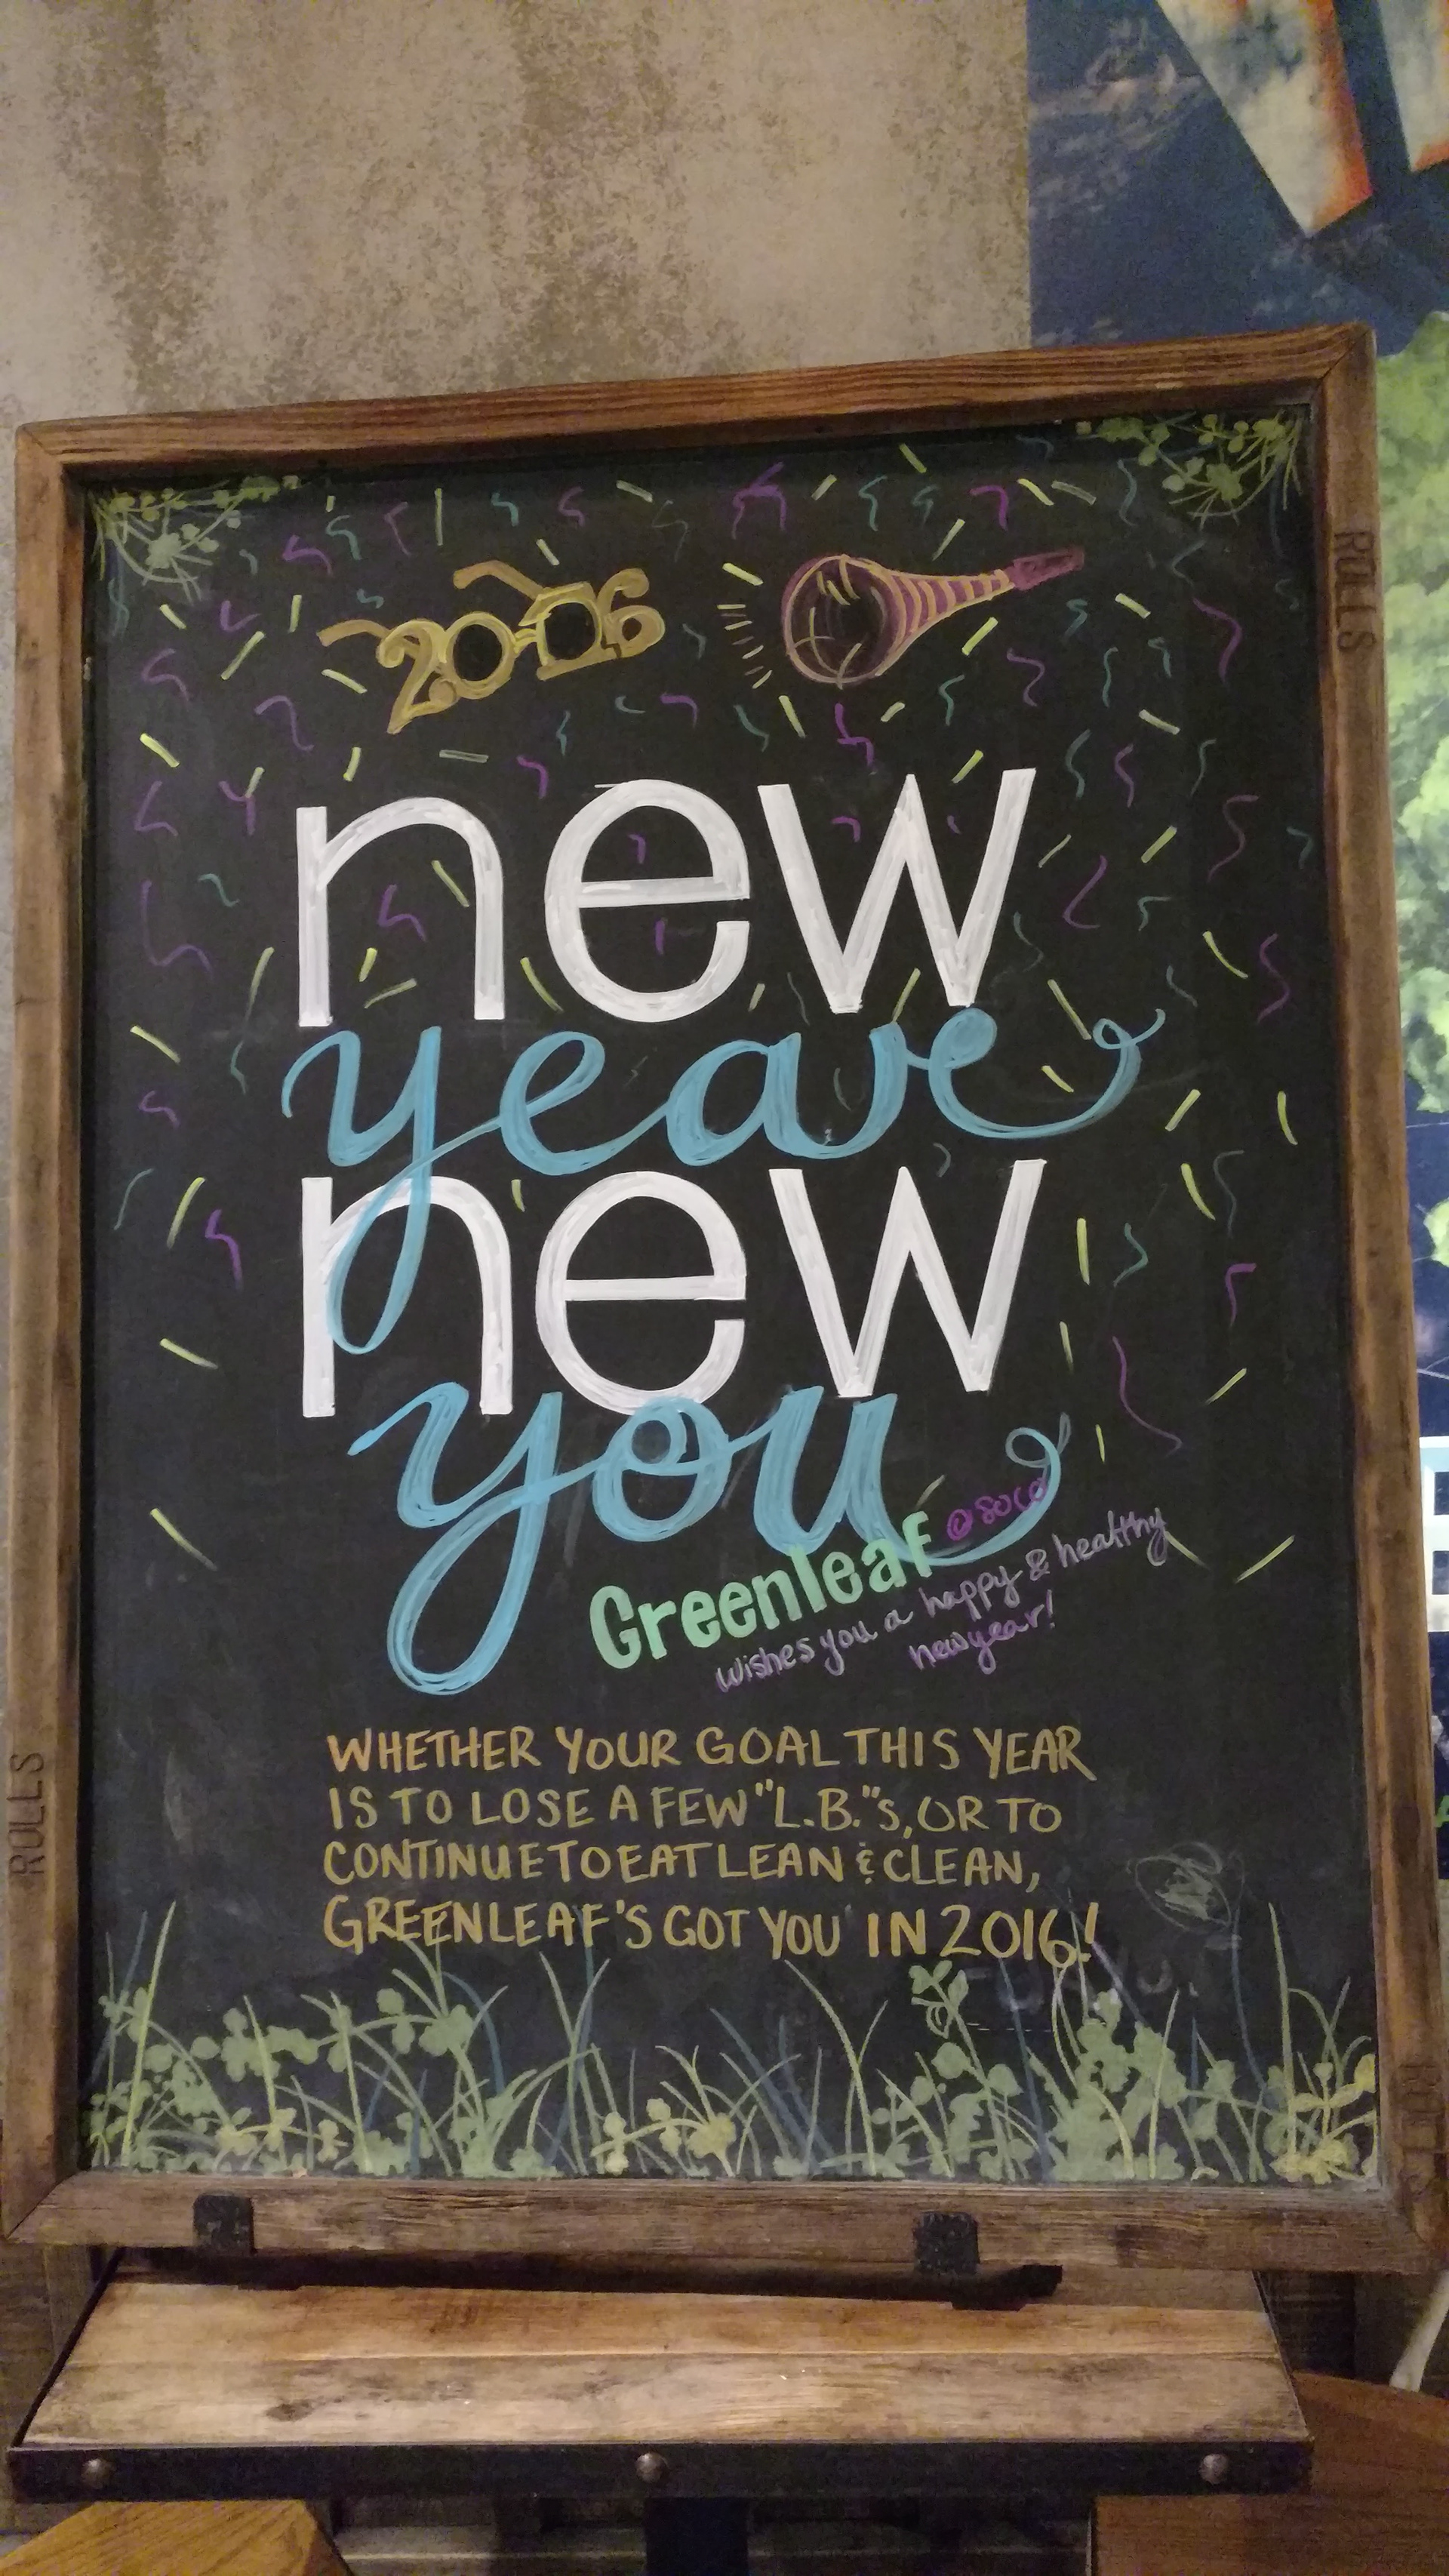 2016
new
year
new
you
Greenleaf @SOCO
wishes you a happy & healthy
new year!
WHETHER YOUR GOAL THIS YEAR
IS TO LOSE A FEW "L.B."s, OR TO
CONTINUE TO EAT LEAN & CLEAN,
GREENLEAF'S GOT YOU IN 2016!
ROLLS
ROLLS